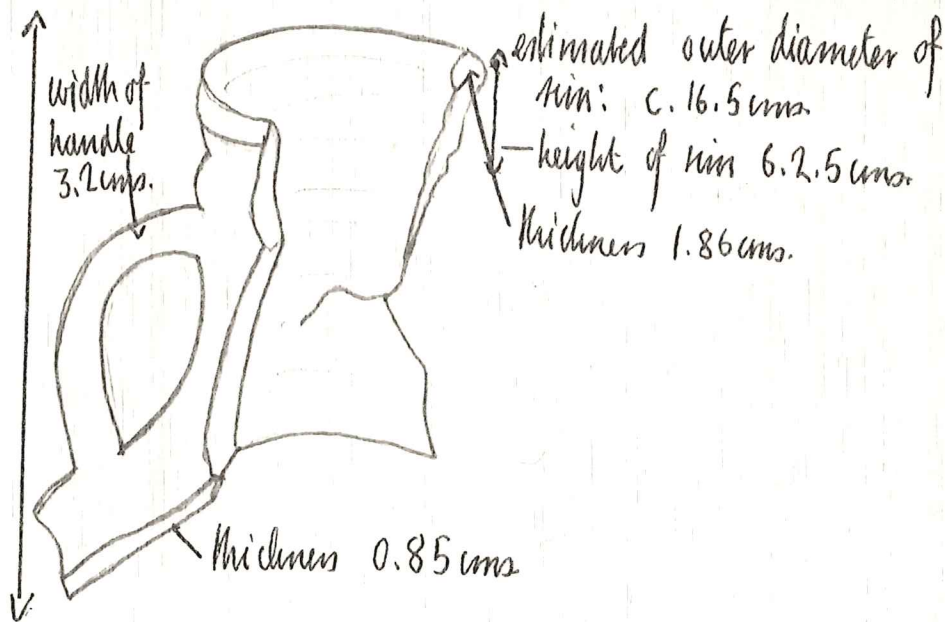 width of
handle
3.2cms.
estimated outer diameter of
rim: c. 16.5cms.
height of rim 6.2.5cms.
thickness 1.86cms.
thickness 0.85cms